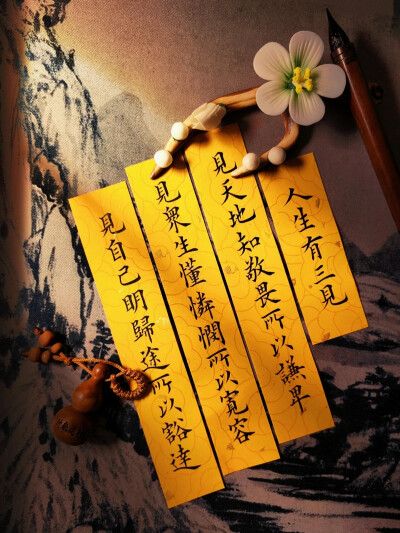 人生有三見
見天地知敬畏所以謙卑
見衆生懂憐憫所以寬容
見自己明歸途所以豁達